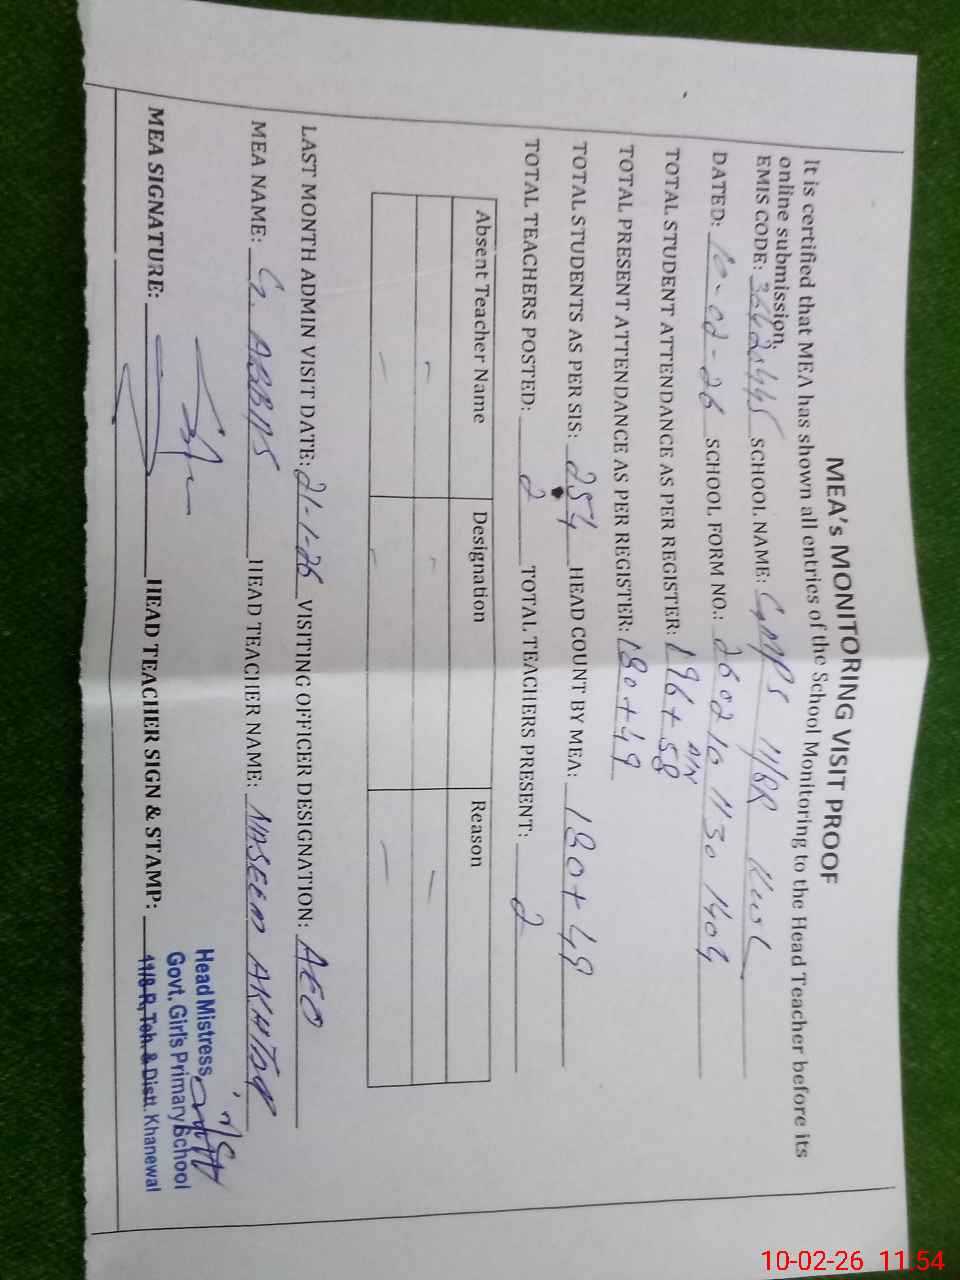 MEA's MONITORING VISIT PROOF
It is certified that MEA has shown all entries of the School Monitoring to the Head Teacher before its
online submission.
EMIS CODE: SCHOOL NAME: 11/8R
DATED: 10-02-26 SCHOOL FORM NO.: 260210 1130 1404
TOTAL STUDENT ATTENDANCE AS PER REGISTER: 196+58
TOTAL PRESENT ATTENDANCE AS PER REGISTER: 180+49
TOTAL STUDENTS AS PER SIS: 254 HEAD COUNT BY MEA: 180+49
TOTAL TEACHERS POSTED: 2 TOTAL TEACHERS PRESENT: 2
Absent Teacher Name Designation Reason
– – –
– – –
LAST MONTH ADMIN VISIT DATE: 21-1-26 VISITING OFFICER DESIGNATION: AEO
MEA NAME: G. ABBAS HEAD TEACHER NAME: NASEEM AKHTAR
MEA SIGNATURE: HEAD TEACHER SIGN & STAMP:
Head Mistress
Govt. Girl's Primary School
11/8-R, Teh. & Distt. Khanewal
10-02-26 11:54